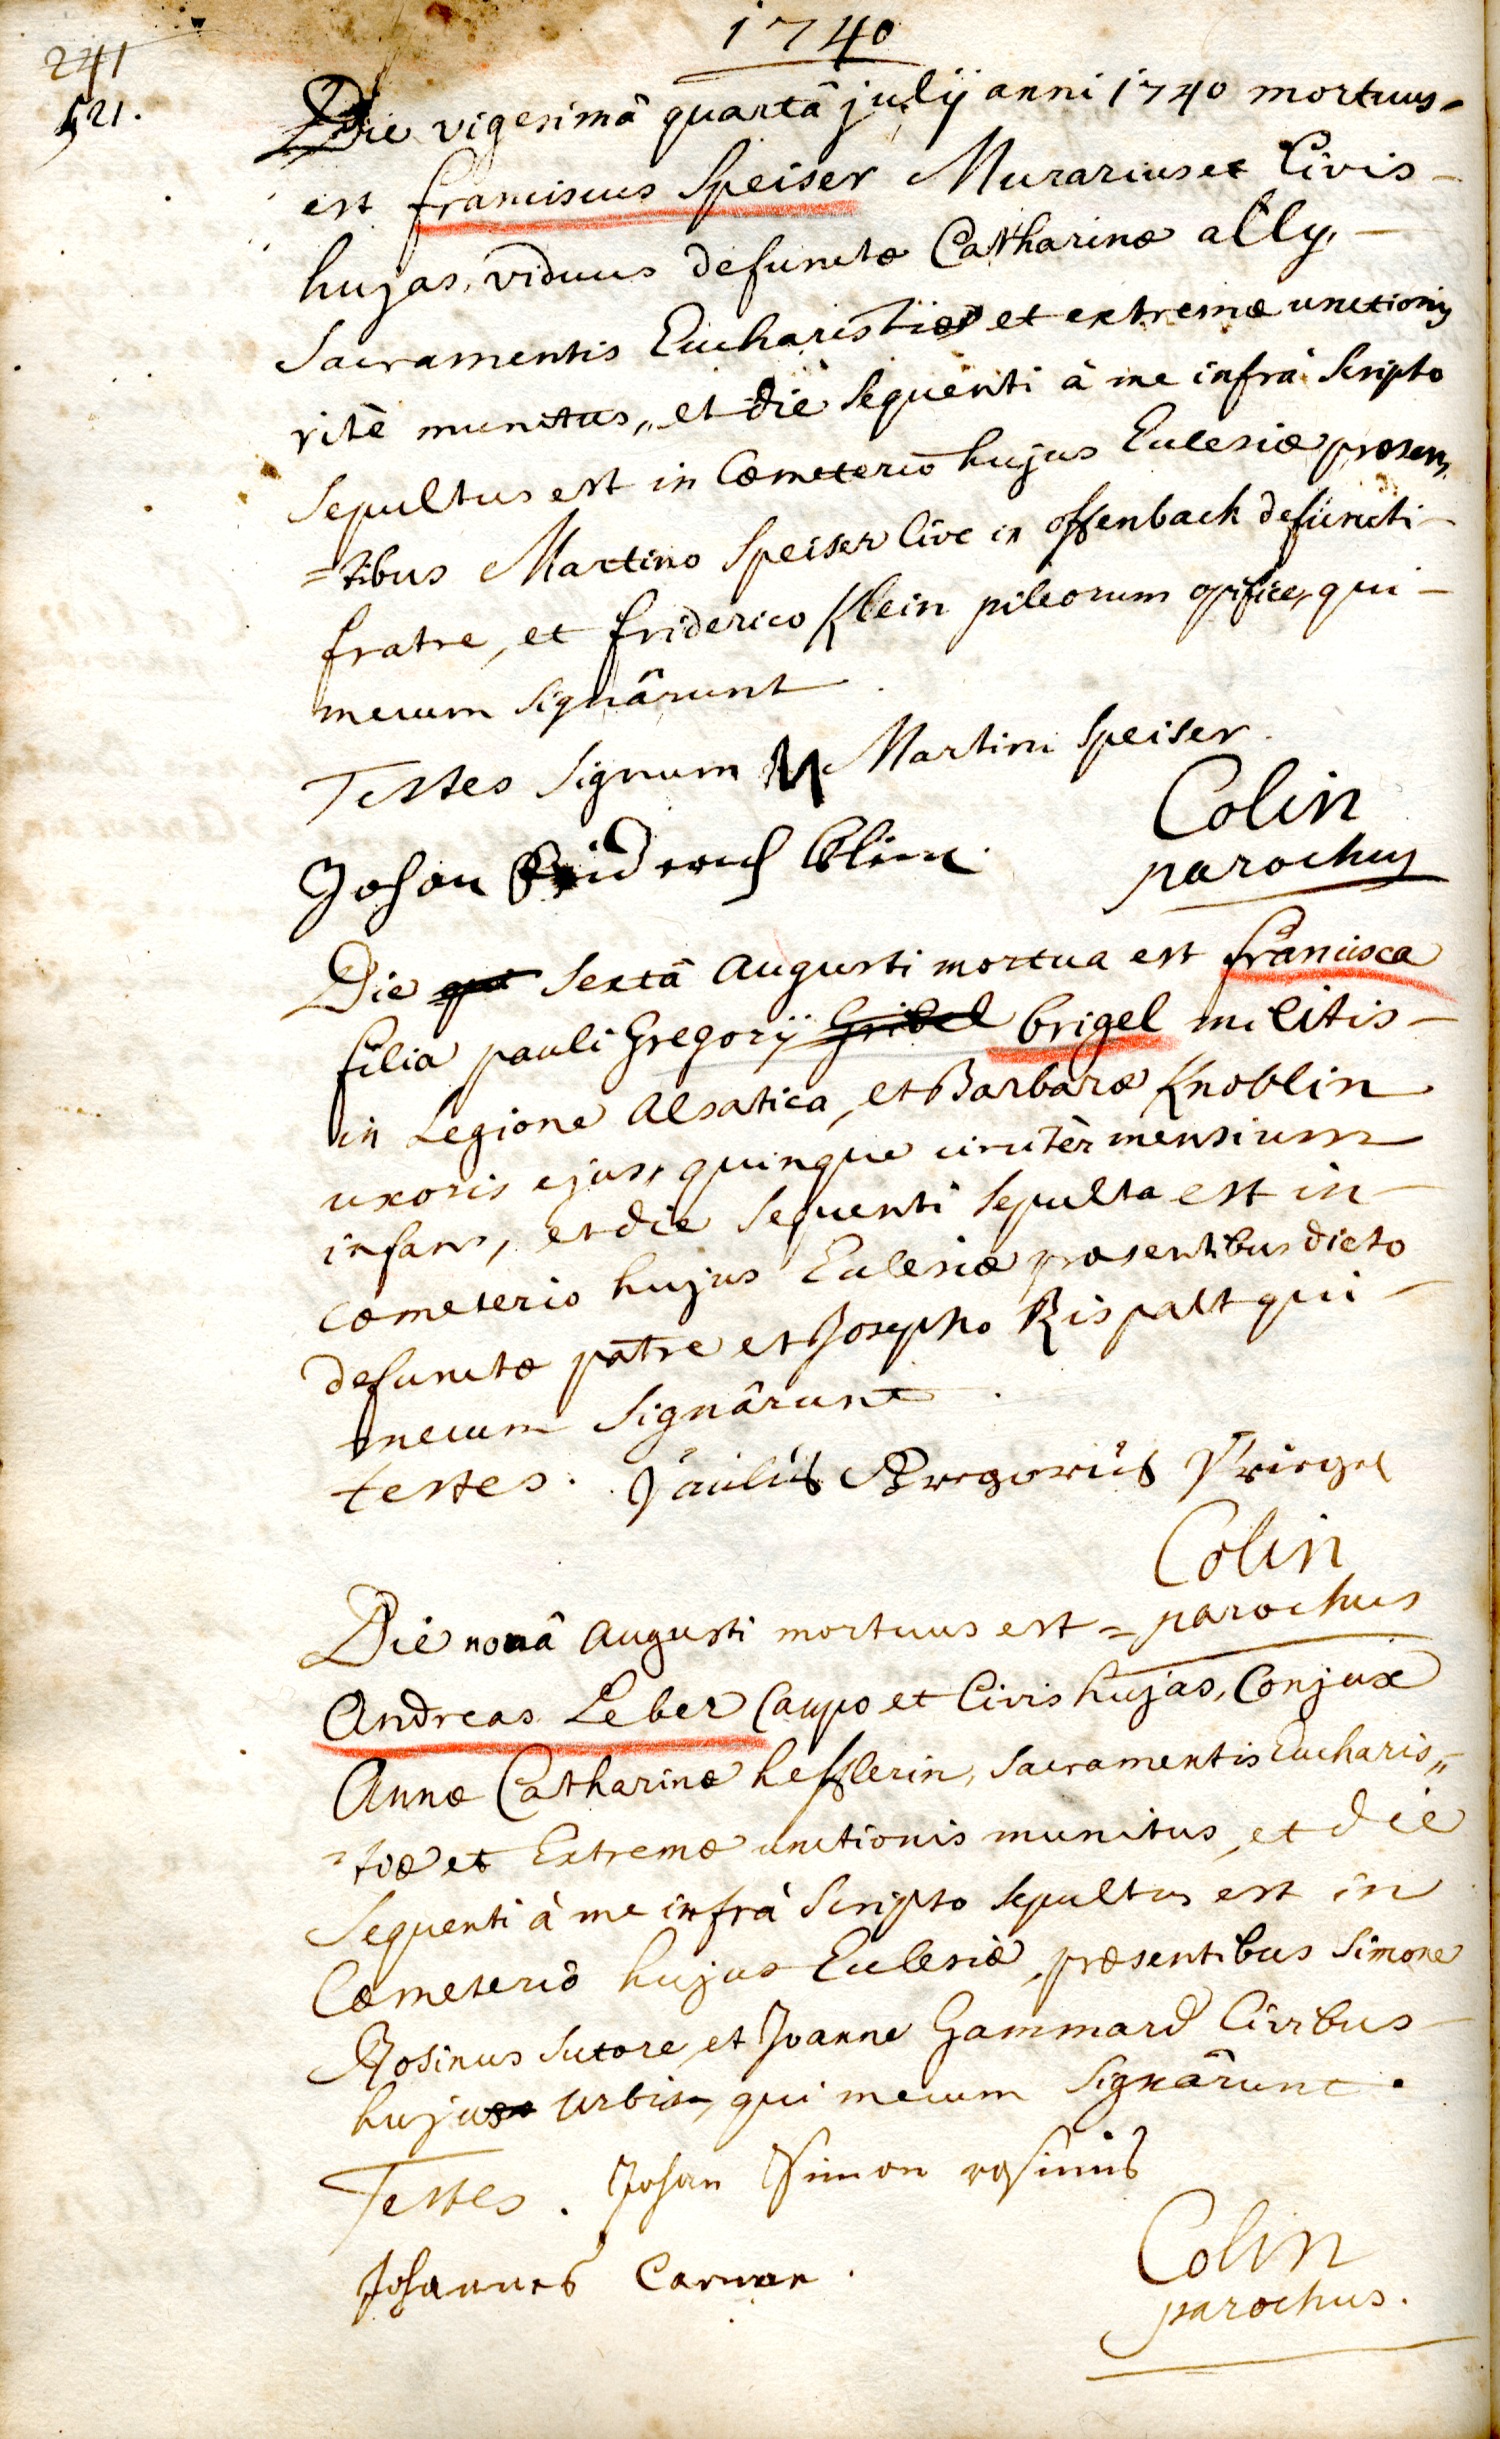 1740
241
521.
Die vigesimâ quartâ julij anni 1740 mortuus
est franciscus Speiser Murarius et Civis
hujas, viduus defunctæ Catharinæ ally,
Sacramentis Eucharistiæ et extremæ unctionis
ritè munitus, et die sequenti à me infrà scripto
sepultus est in Cœmeterio hujus Ecclesiæ præsen,
=tibus Martino Speiser Cive in offenbach defuncti
fratre, et friderico Klein pileorum opifice, qui
mecum signârunt
Testes Signum M Martini Speiser.
Johan Fridrich Klein
Colin
parochus
Die sextâ Augusti mortua est francisca
filia pauli Gregorij Gribel brigel militis
in Legione Alsatica, et Barbaræ Knoblin
uxoris ejus, quinque circitèr mensium
infans, et die sequenti sepulta est in
cœmeterio hujus Ecclesiæ præsentibus dicto
defunctæ patre et Josepho Rispalt qui
mecum signârunt.
testes. Paulus Gregorius Priegel
Colin
parochus
Die nonâ Augusti mortuus est =
Andreas Leber Caupo et Civis hujas, Conjux
Annæ Catharinæ hesslerin, sacramentis Eucharis,,
=tiæ et Extremæ unctionis munitus, et die
sequenti à me infrà scripto sepultus est in
Cœmeterio hujus Ecclesiæ, præsentibus Simone
Rosinus sutore, et Joanne Gammard Civibus
hujus Urbis, qui mecum signârunt.
Testes. Johan Simon rosinus
Johannes Carman.
Colin
parochus.